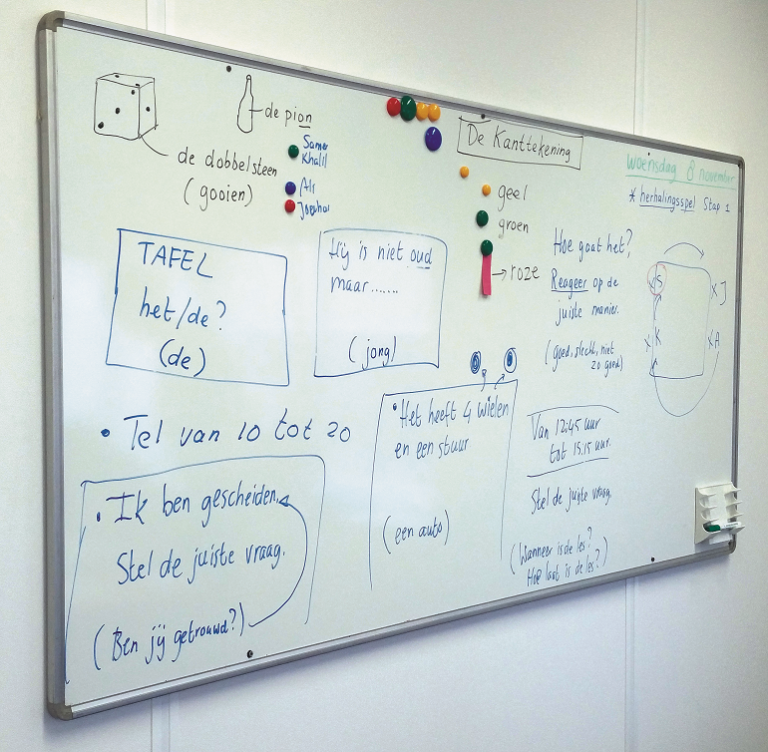 de pion
de dobbelsteen
(gooien)
Samer
Khalil
Ali
De Kanttekening
geel
groen
roze
woensdag 8 november
* herhalingsspel Stap 1
TAFEL
het/de?
(de)
Hij is niet oud
maar.......
(jong)
Hoe gaat het?
Reageer op de
juiste manier.
(goed, slecht, niet
zo goed)
x S
x J
x K
x A
• Tel van 10 tot 20
• Het heeft 4 wielen
en een stuur
(een auto)
Van 12:45 uur
tot 15:15 uur.
Stel de juiste vraag.
(Wanneer is de les?
Hoe laat is de les?)
• Ik ben gescheiden.
Stel de juiste vraag.
(Ben jij getrouwd?)